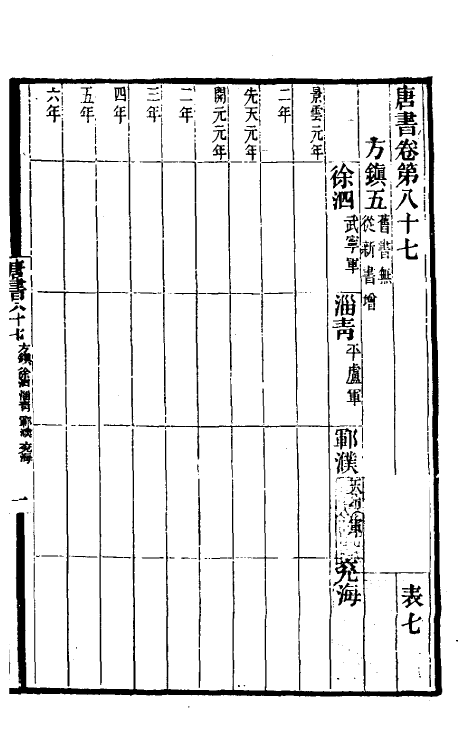 唐書卷第八十七
表七
方鎮五 舊書無從新書增
徐泗 武寧軍
淄青 平盧軍
鄆濮 天平軍
兗海
景雲元年
二年
先天元年
開元元年
二年
三年
四年
五年
六年
唐書八十七 方鎮 徐泗 淄青 鄆濮 兗海
一